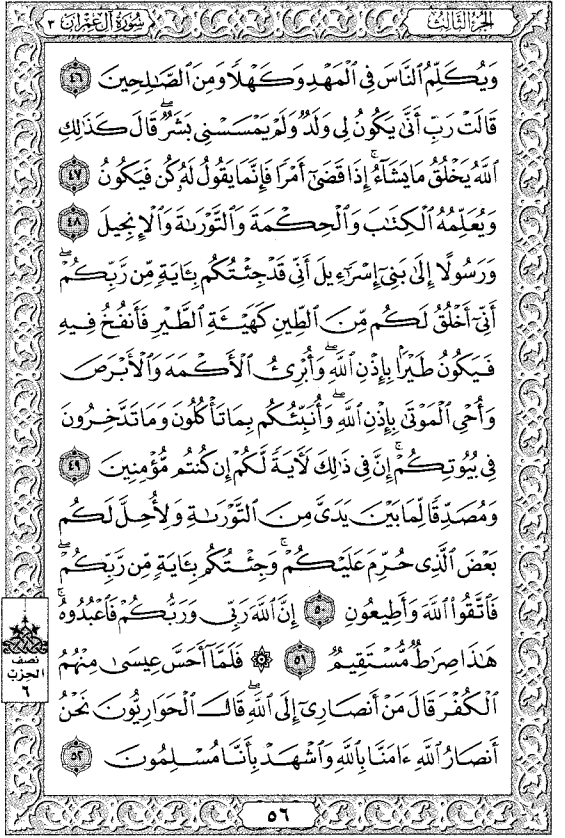 الجزء الثالث
سورة آل عمران ٣
وَيُكَلِّمُ ٱلنَّاسَ فِي ٱلْمَهْدِ وَكَهْلًا وَمِنَ ٱلصَّٰلِحِينَ ٤٦
قَالَتْ رَبِّ أَنَّىٰ يَكُونُ لِي وَلَدٌ وَلَمْ يَمْسَسْنِي بَشَرٌ ۖ قَالَ كَذَٰلِكِ
ٱللَّهُ يَخْلُقُ مَا يَشَآءُ ۚ إِذَا قَضَىٰٓ أَمْرًا فَإِنَّمَا يَقُولُ لَهُۥ كُن فَيَكُونُ ٤٧
وَيُعَلِّمُهُ ٱلْكِتَٰبَ وَٱلْحِكْمَةَ وَٱلتَّوْرَىٰةَ وَٱلْإِنجِيلَ ٤٨
وَرَسُولًا إِلَىٰ بَنِيٓ إِسْرَٰٓءِيلَ أَنِّي قَدْ جِئْتُكُم بِـَٔايَةٍ مِّن رَّبِّكُمْ ۖ
أَنِّيٓ أَخْلُقُ لَكُم مِّنَ ٱلطِّينِ كَهَيْـَٔةِ ٱلطَّيْرِ فَأَنفُخُ فِيهِ
فَيَكُونُ طَيْرًۢا بِإِذْنِ ٱللَّهِ ۖ وَأُبْرِئُ ٱلْأَكْمَهَ وَٱلْأَبْرَصَ
وَأُحْيِ ٱلْمَوْتَىٰ بِإِذْنِ ٱللَّهِ ۖ وَأُنَبِّئُكُم بِمَا تَأْكُلُونَ وَمَا تَدَّخِرُونَ
فِي بُيُوتِكُمْ ۚ إِنَّ فِي ذَٰلِكَ لَـَٔايَةً لَّكُمْ إِن كُنتُم مُّؤْمِنِينَ ٤٩
وَمُصَدِّقًا لِّمَا بَيْنَ يَدَيَّ مِنَ ٱلتَّوْرَىٰةِ وَلِأُحِلَّ لَكُم
بَعْضَ ٱلَّذِي حُرِّمَ عَلَيْكُمْ ۚ وَجِئْتُكُم بِـَٔايَةٍ مِّن رَّبِّكُمْ ۖ
فَٱتَّقُوا۟ ٱللَّهَ وَأَطِيعُونِ ٥٠ إِنَّ ٱللَّهَ رَبِّي وَرَبُّكُمْ فَٱعْبُدُوهُ ۗ
هَٰذَا صِرَٰطٌ مُّسْتَقِيمٌ ٥١ ۞ فَلَمَّآ أَحَسَّ عِيسَىٰ مِنْهُمُ
ٱلْكُفْرَ قَالَ مَنْ أَنصَارِيٓ إِلَى ٱللَّهِ ۖ قَالَ ٱلْحَوَارِيُّونَ نَحْنُ
أَنصَارُ ٱللَّهِ ءَامَنَّا بِٱللَّهِ وَٱشْهَدْ بِأَنَّا مُسْلِمُونَ ٥٢
نصف
الحزب
٦
٥٦